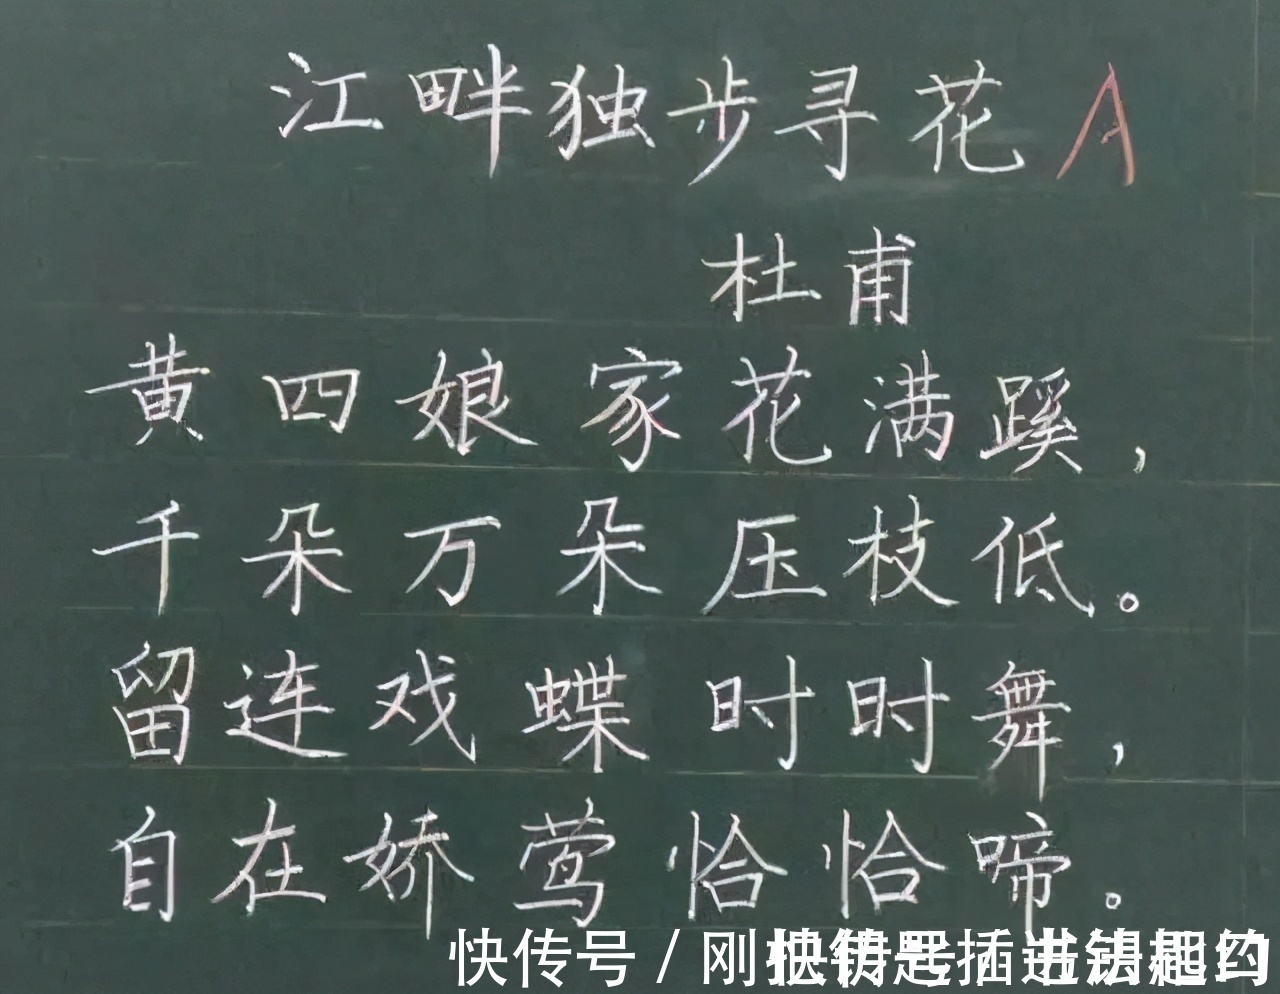 江畔独步寻花 A
杜甫
黄四娘家花满蹊，
千朵万朵压枝低。
留连戏蝶时时舞，
自在娇莺恰恰啼。
快传号／刚